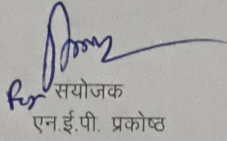 For सयोजक
एन.ई.पी. प्रकोष्ठ